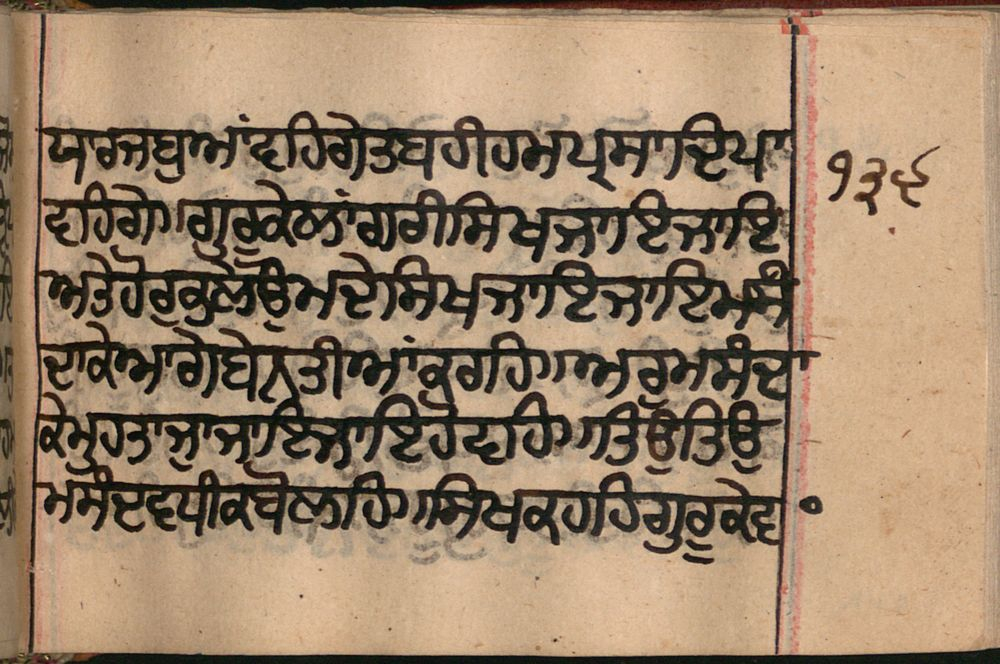 ਯਾਰਜਬੁਆਂਵਹਿਗੇਤਬਹੀਹਮਪ੍ਰਸਾਦਿਪਾ
ਵਹਿਗੇ॥ਗੁਰੂਕੇਲਾਂਗਰੀਸਿਖਜਾਇਜਾਇ
ਅਤੇਹੋਰੁਕੁਲੇਊਮਦੇਸਿਖਜਾਇਜਾਇਮਸੰ
ਦਾਕੇਆਗੇਬੇਨਤੀਆਂਕਰਹਿ॥ਅਰੁਮਸੰਦਾ
ਕੇਮੁਹਤਾਜਾਜਾਇਜਾਇਹੋਵਹਿ॥ਤਿਉਤਿਉ
ਮਸੰਦਵਧੀਕਬੋਲਹਿ॥ਸਿਖਕਹਹਿਗੁਰੂਕੇਵ
੧੩੬